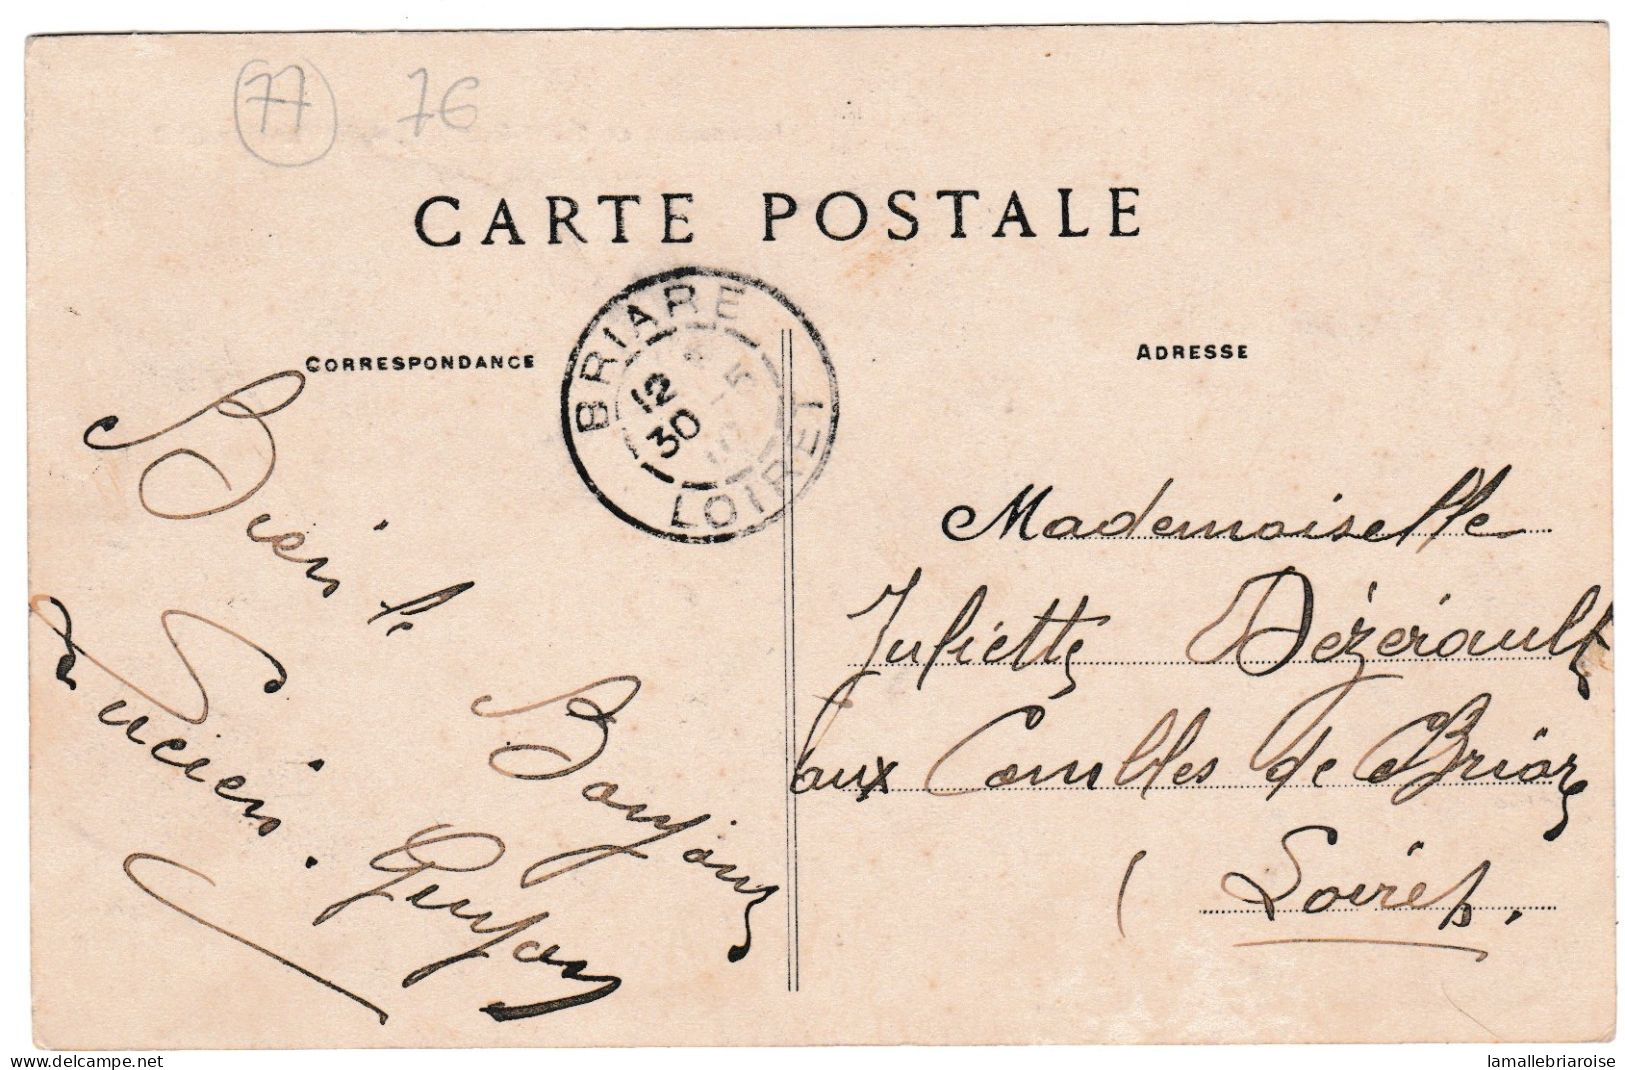 77 76
CARTE POSTALE
CORRESPONDANCE
ADRESSE
BRIARE
12
30
LOIRET
Bien le
Bonjour
Lucien.
Guyon
Mademoiselle
Juliette Dézérault
aux Combles de Briare
(Loiret.
delcampe.net
lamallebriaroise